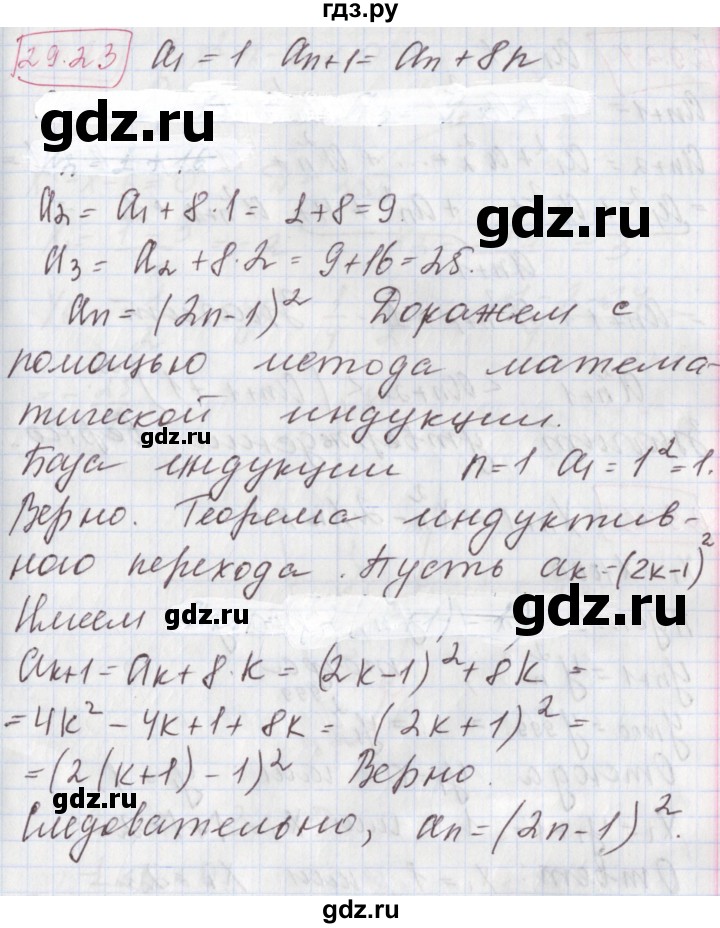 гдз.ру
29.23 a₁ = 1 aₙ₊₁ = aₙ + 8n
gdz.ru
a₂ = a₁ + 8·1 = 1+8=9.
a₃ = a₂ + 8·2 = 9+16=25.
gdz.ru
aₙ = (2n-1)² Докажем с
помощью метода матема-
тической индукции.
gdz.ru gdz.ru
База индукции n=1 a₁ = 1² = 1.
Верно. Теорема индуктив-
ного перехода. Пусть aₖ = (2k-1)²
gdz.ru
Имеем
gdz.ru
aₖ₊₁ = aₖ + 8·k = (2k-1)² + 8k =
= 4k² - 4k + 1 + 8k = (2k+1)² =
= (2(k+1) - 1)² Верно.
gdz.ru
Следовательно, aₙ = (2n-1)².
gdz.ru
gdz.ru